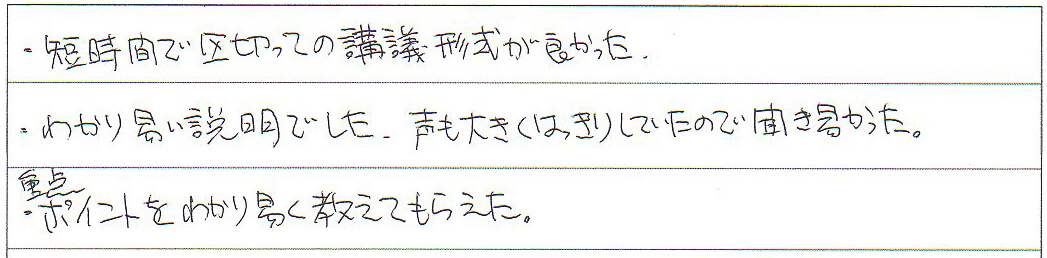 ・短時間で区切っての講議形式が良かった.
・わかり易い説明でした. 声も大きくはっきりしていたので聞き易かった。
重点
・ポイントをわかり易く教えてもらえた。